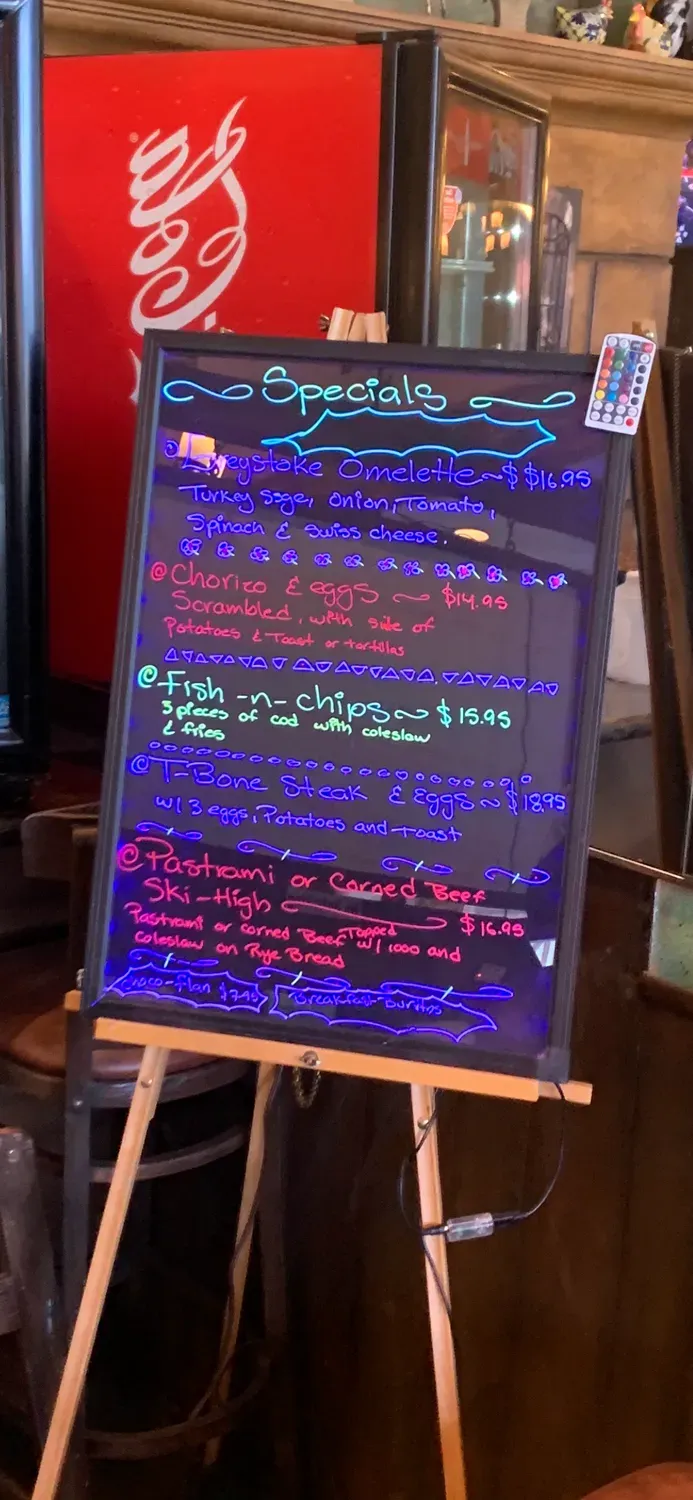 Specials
@ Greystoke Omelette ~ $ $16.95
Turkey Ssge, Onion, Tomato,
Spinach & Swiss cheese.
@ Chorizo & eggs ~ $14.95
Scrambled, with side of
Potatoes & Toast or tortillas
@ Fish -n- chips ~ $15.95
3 pieces of cod with coleslaw
& fries
@ T-Bone Steak & Eggs ~ $18.95
w/ 3 eggs, Potatoes and toast
@ Pastrami or Corned Beef
Ski-High $16.95
Pastrami or corned Beef Topped w/ 1000 and
coleslaw on Rye Bread
Choco-Flan $7.95
Breakfast Burritos